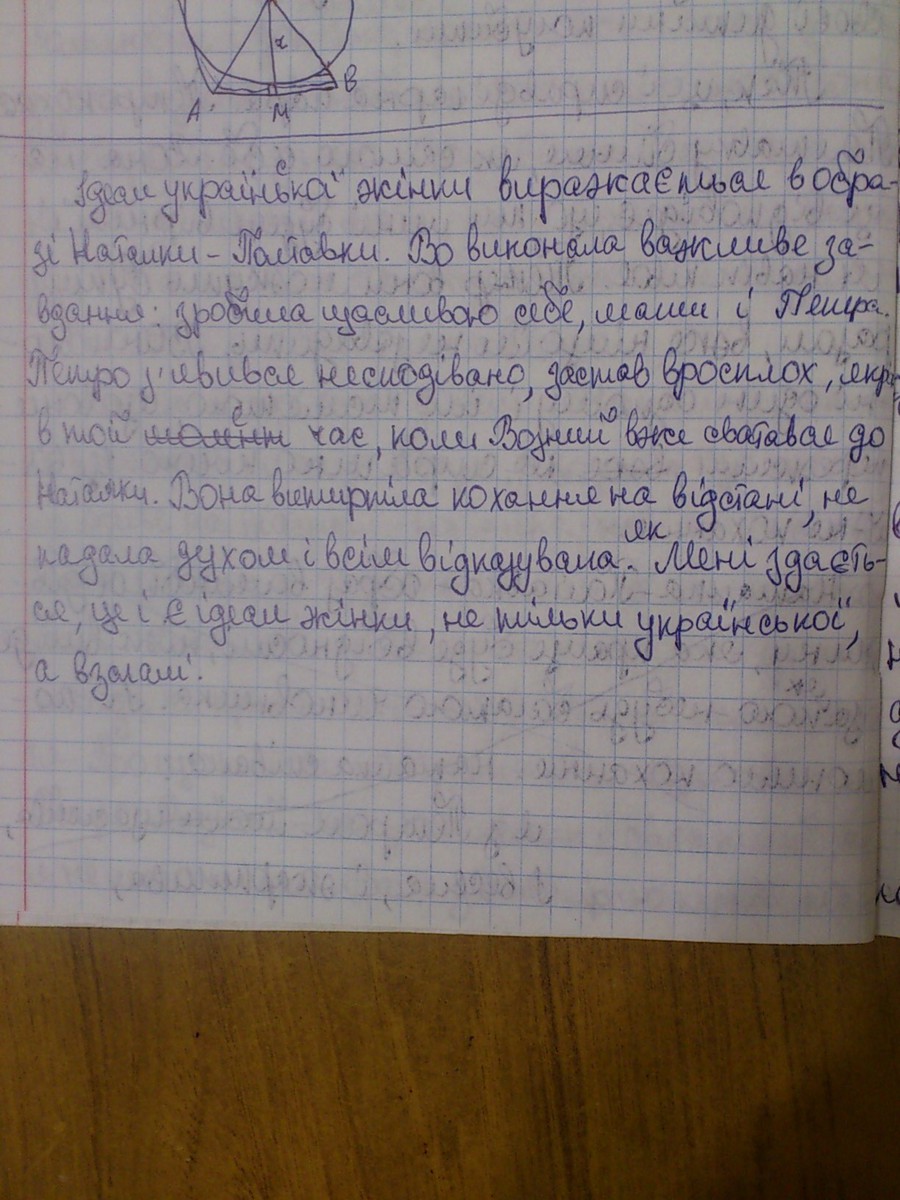 A M B
Ідеал української жінки виражається в обра-
зі Наталки-Полтавки. Во виконала важливе за-
вдання: зробила щасливою себе, маму і Петра.
Петро з'явився несподівано, застав вросплох, якр
в той час, коли Возний вже сватався до
Наталки. Вона витерпіла кохання на відстані, не
падала духом і всім як відказувала. Мені здаєть-
ся, це і є ідеал жінки, не тільки української,
а взагалі.